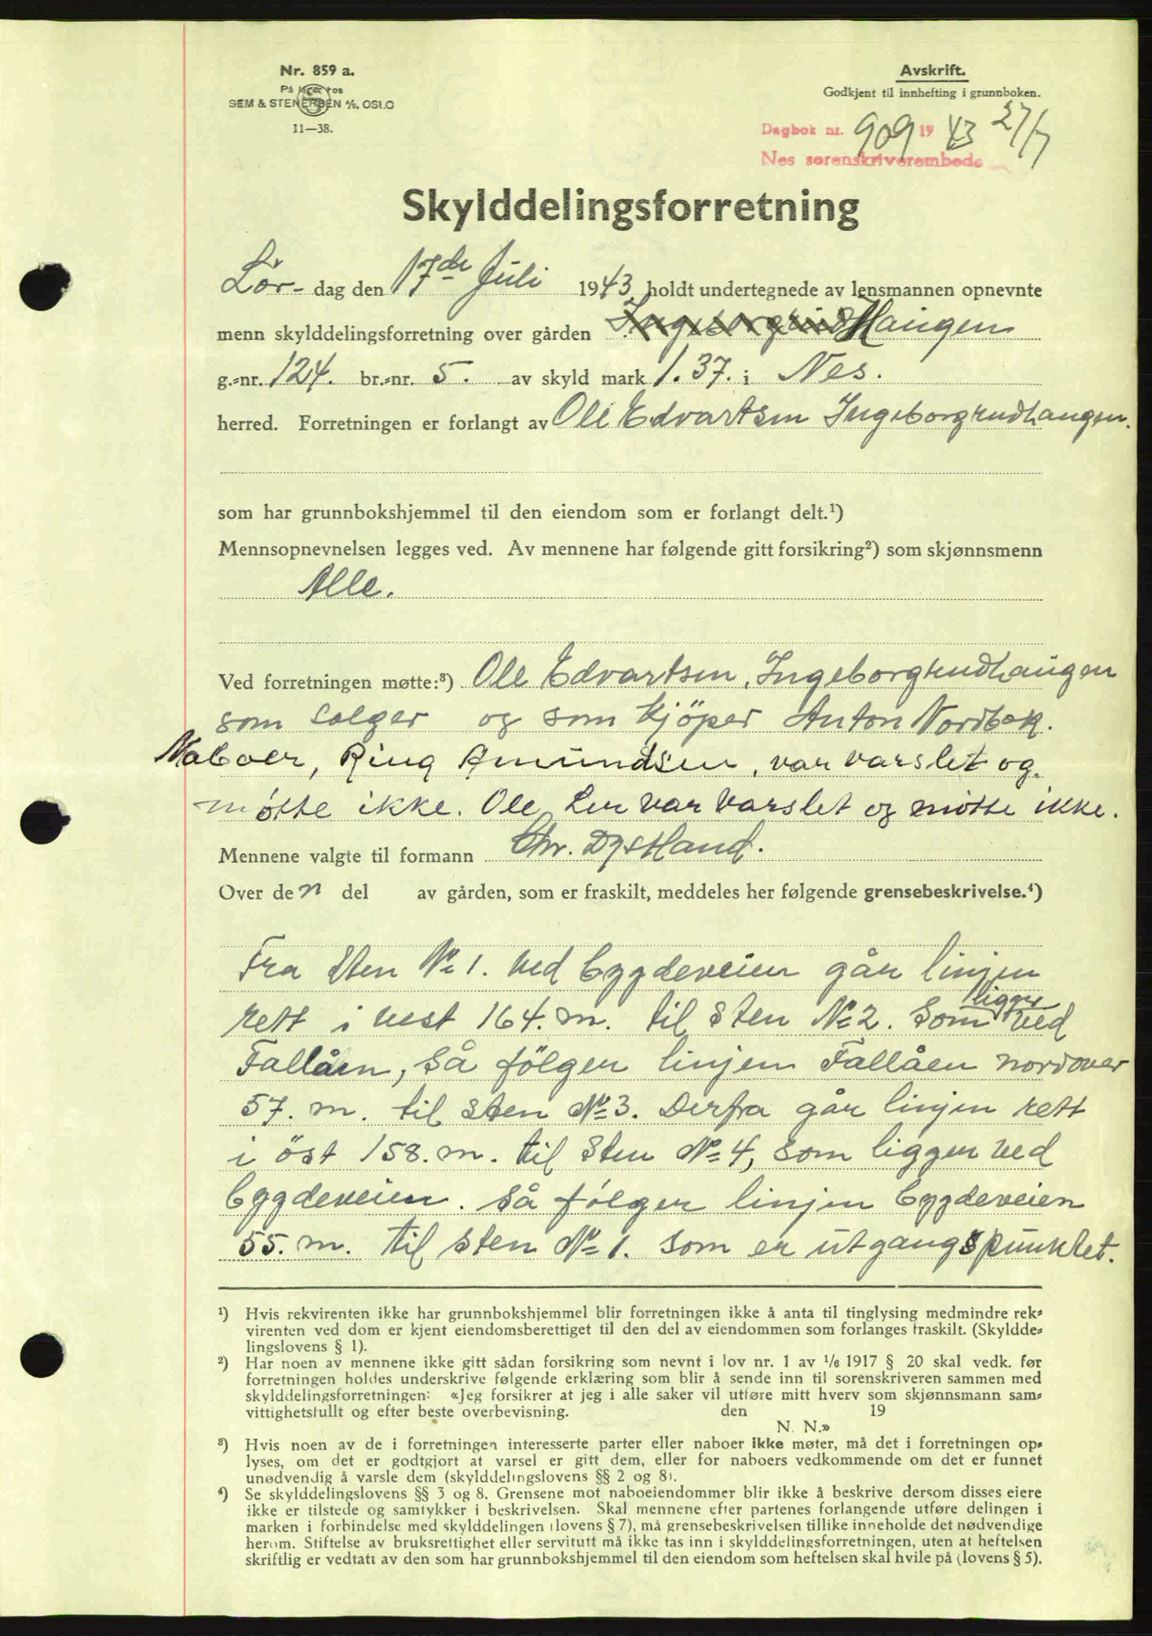 Nr. 859 a.
På lager hos
SEM & STENERSEN A/S, OSLO
11—38.
Avskrift.
Godkjent til innhefting i grunnboken.
Dagbok nr. 909 1943 27/7
Nes sorenskriverembede
Skylddelingsforretning
Lør- dag den 17de Juli 1943 holdt undertegnede av lensmannen opnevnte
menn skylddelingsforretning over gården Haugen
g.-nr. 124. br.-nr. 5. av skyld mark 1.37. i Nes.
herred. Forretningen er forlangt av Ole Edvartsen Ingeborgrudhaugen.
som har grunnbokshjemmel til den eiendom som er forlangt delt.¹)
Mennsopnevnelsen legges ved. Av mennene har følgende gitt forsikring²) som skjønnsmenn
Alle.
Ved forretningen møtte:³) Ole Edvartsen, Ingeborgrudhaugen
som selger og som kjöper Anton Nordbak.
Naboer, Ring Amundsen, var varslet og
møtte ikke. Ole Ler var varslet og møtte ikke.
Mennene valgte til formann Chr. Dystland.
Over de n del av gården, som er fraskilt, meddeles her følgende grensebeskrivelse.⁴)
Fra Sten No 1. ved bygdeveien går linjen
rett i vest 164. m. til Sten No 2. Som ligger ved
Fallåen, så fölger linjen Fallåen nordover
57. m. til sten No 3. Derfra går linjen rett
i öst 158. m. til Sten No 4, som ligger ved
bygdeveien. så følger linjen bygdeveien
55. m. til sten No 1. som er utgangspunktet.
¹) Hvis rekvirenten ikke har grunnbokshjemmel blir forretningen ikke å anta til tinglysing medmindre rek-
virenten ved dom er kjent eiendomsberettiget til den del av eiendommen som forlanges fraskilt. (Skyldde-
lingslovens § 1).
²) Har noen av mennene ikke gitt sådan forsikring som nevnt i lov nr. 1 av 1/6 1917 § 20 skal vedk. før
forretningen holdes underskrive følgende erklæring som blir å sende inn til sorenskriveren sammen med
skylddelingsforretningen: «Jeg forsikrer at jeg i alle saker vil utføre mitt hverv som skjønnsmann sam-
vittighetsfullt og efter beste overbevisning. den 19
N. N.»
³) Hvis noen av de i forretningen interesserte parter eller naboer ikke møter, må det i forretningen op-
lyses, om det er godtgjort at varsel er gitt dem, eller for naboers vedkommende om det er funnet
unødvendig å varsle dem (skylddelingslovens §§ 2 og 8).
⁴) Se skylddelingslovens §§ 3 og 8. Grensene mot naboeiendommer blir ikke å beskrive dersom disses eiere
ikke er tilstede og samtykker i beskrivelsen. Skal mennene efter partenes forlangende utføre delingen i
marken i forbindelse med skylddelingen (lovens § 7), må grensebeskrivelsen tillike inneholde det nødvendige
herom. Stiftelse av bruksrettighet eller servitutt må ikke tas inn i skylddelingsforretningen, uten at heftelsen
skriftlig er vedtatt av den som har grunnbokshjemmel til den eiendom som heftelsen skal hvile på (lovens § 5).